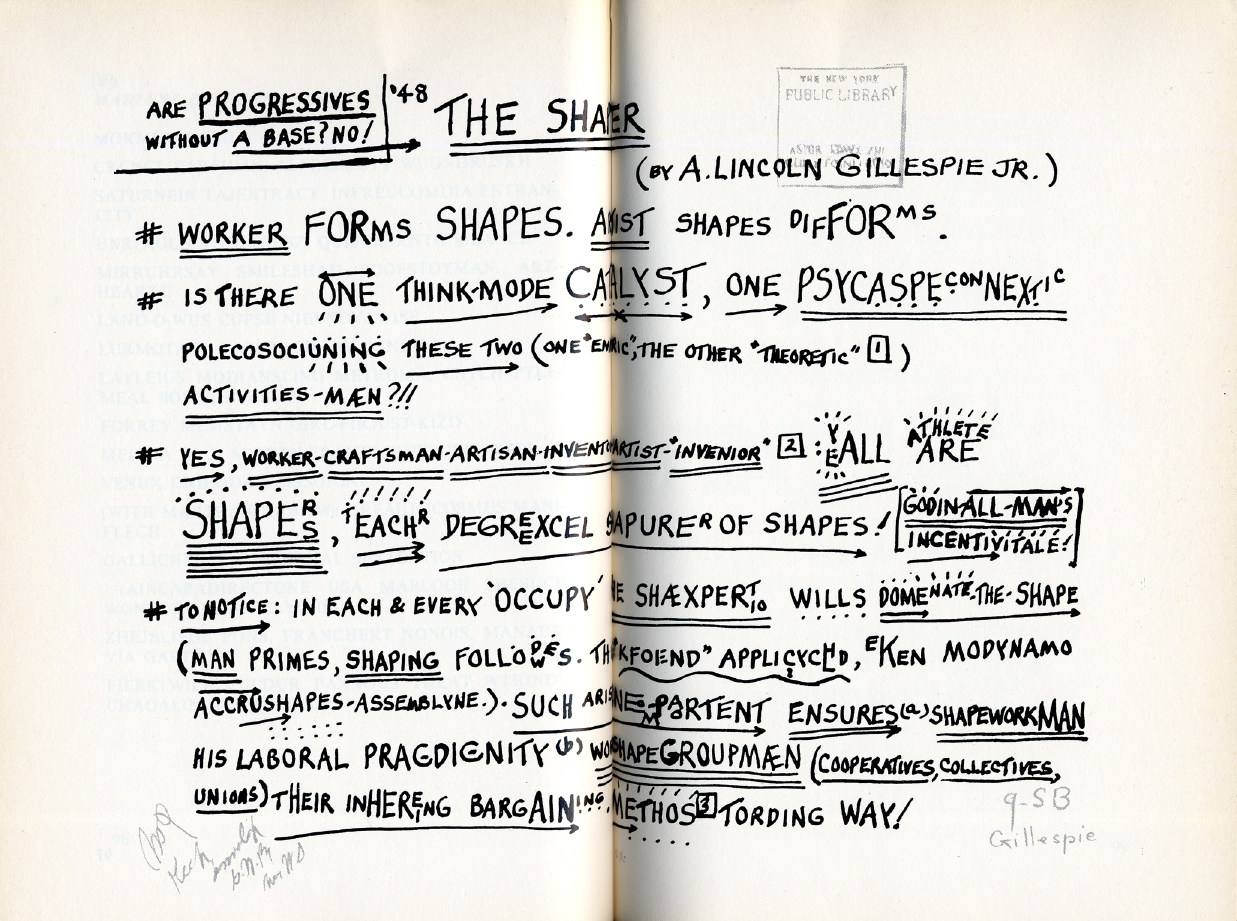 ARE PROGRESSIVES '48
WITHOUT A BASE? NO!
THE SHAPER
THE NEW YORK
PUBLIC LIBRARY
(BY A. LINCOLN GILLESPIE JR.)
# WORKER FORMS SHAPES. ARTIST SHAPES DIFFORMS.
# IS THERE ONE THINK-MODE CATALYST, ONE PSYCASPECONNEXTIC
POLECOSOCIUNING THESE TWO (ONE "EMPIRIC", THE OTHER "THEORETIC" [1])
ACTIVITIES-MÆN?!!
# YES, WORKER-CRAFTSMAN-ARTISAN-INVENTOR-ARTIST-"INVENIOR" [2]: YEALL ATHLETE ARE
SHAPERS, EACH DEGREEXCEL OF SHAPES! [GODIN-ALL-MAN'S
INCENTIVITALÉ!]
# TO NOTICE: IN EACH & EVERY 'OCCUPY' THE SHÆXPERT WILLS DOMENATE-THE-SHAPE
(MAN PRIMES, SHAPING FOLLOWS. APPLICYCHD, EKEN MODYNAMO
ACCRUSHAPES-ASSEMBLYNE.). SUCH ENSURES (a) SHAPEWORKMAN
HIS LABORAL PRAGDIGNITY (b) GROUPMÆN (COOPERATIVES, COLLECTIVES,
UNIONS) THEIR INHERENG BARGAINING METHOS [3] TORDING WAY!
9-SB
Gillespie